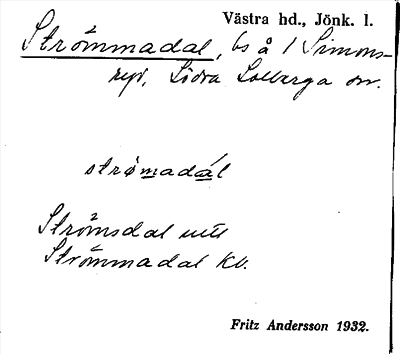 Västra hd., Jönk. l.
Strömmadal, bs å 1 Simons-
ryd, Södra Solberga sn.
strømadál
Strömsdal
Strömmadal Kb.
Fritz Andersson 1932.